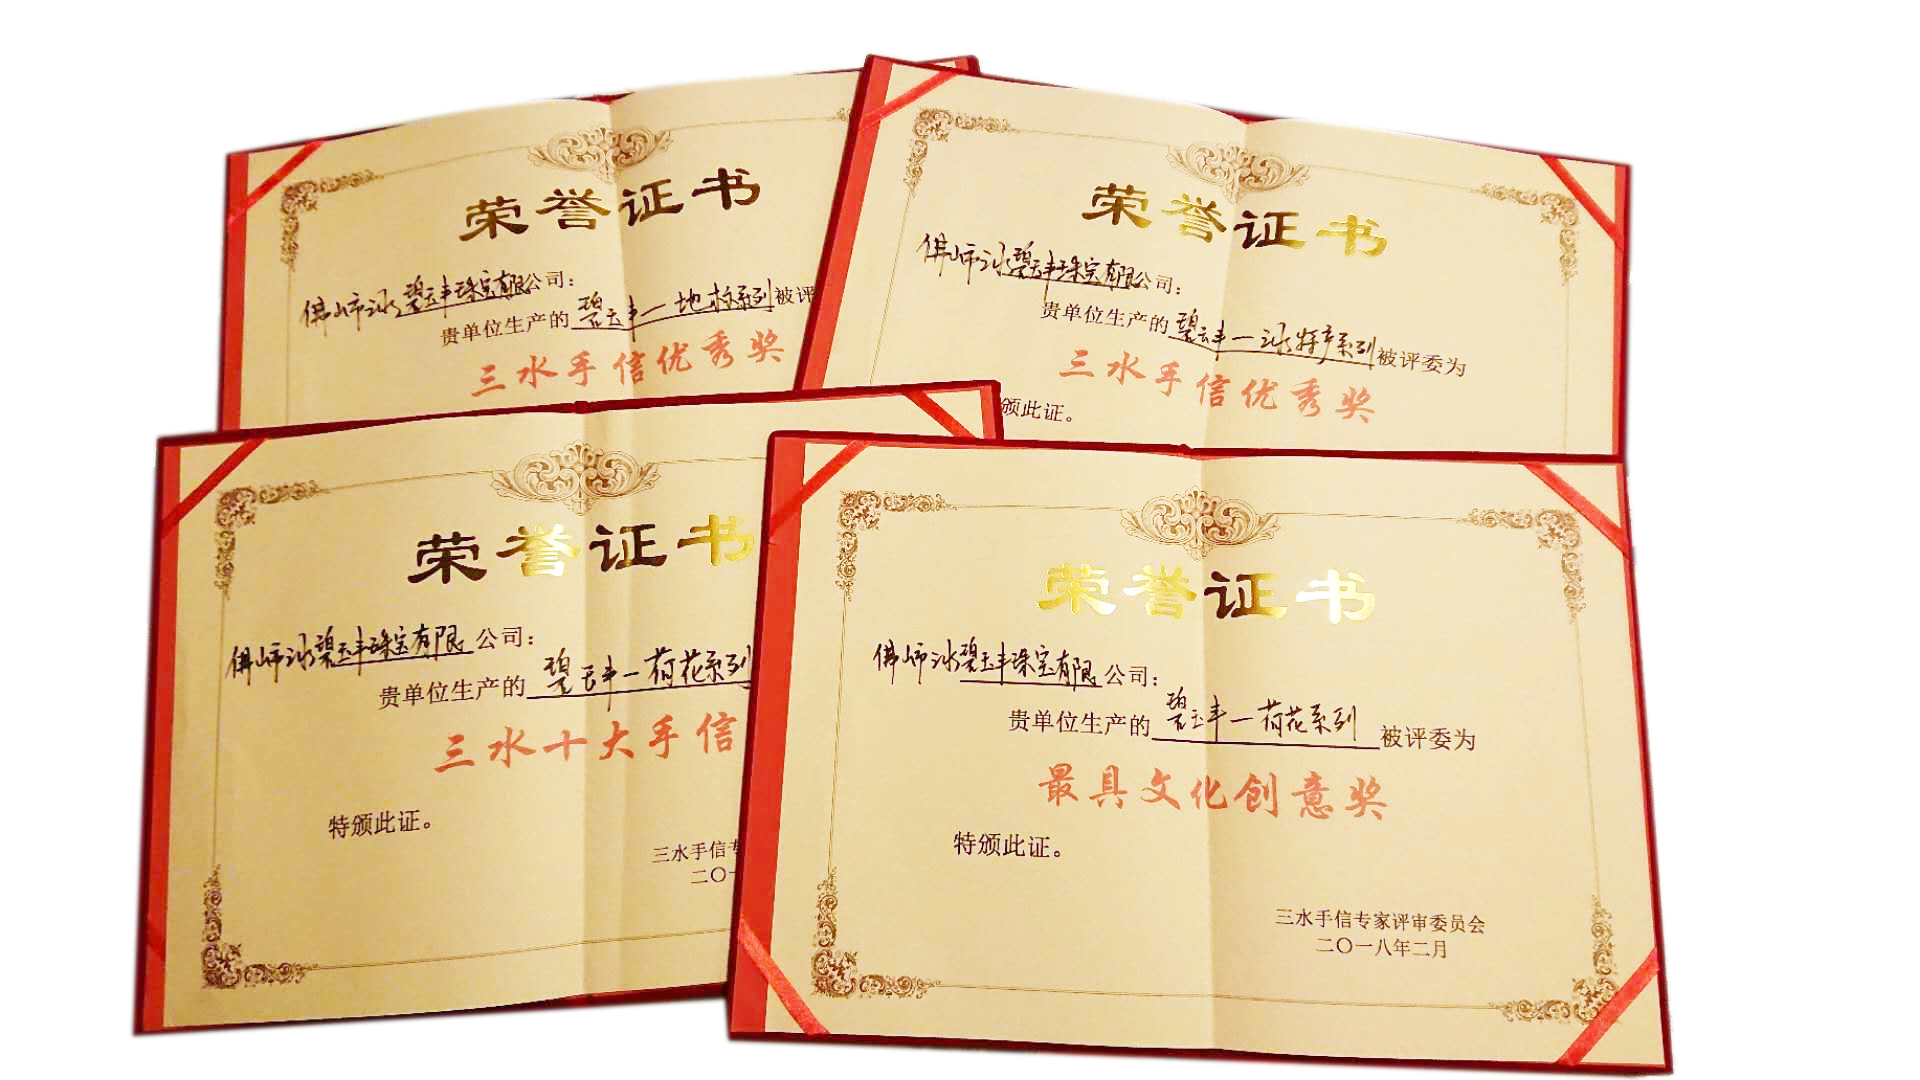 荣誉证书
佛山市三水碧云丰珠宝有限公司：
贵单位生产的碧云丰—地标系列被评
三水手信优秀奖
荣誉证书
佛山市三水碧云丰珠宝有限公司：
贵单位生产的碧云丰—三水特产系列被评委为
三水手信优秀奖
颁此证。
荣誉证书
佛山市三水碧玉丰珠宝有限公司：
贵单位生产的碧云丰—荷花系列
三水十大手信
特颁此证。
三水手信专
二〇一
荣誉证书
佛山市三水碧玉丰珠宝有限公司：
贵单位生产的碧玉丰—荷花系列被评委为
最具文化创意奖
特颁此证。
三水手信专家评审委员会
二〇一八年二月